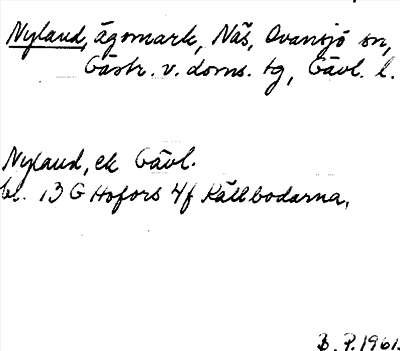 Nyland, ägomark, Näs, Ovansjö sn,
Gästr. v. doms. tg, Gävl. l.
Nyland, ek Gävl.
bl. 13 G Hofors 4f Källbodarna,
B. P. 1961.